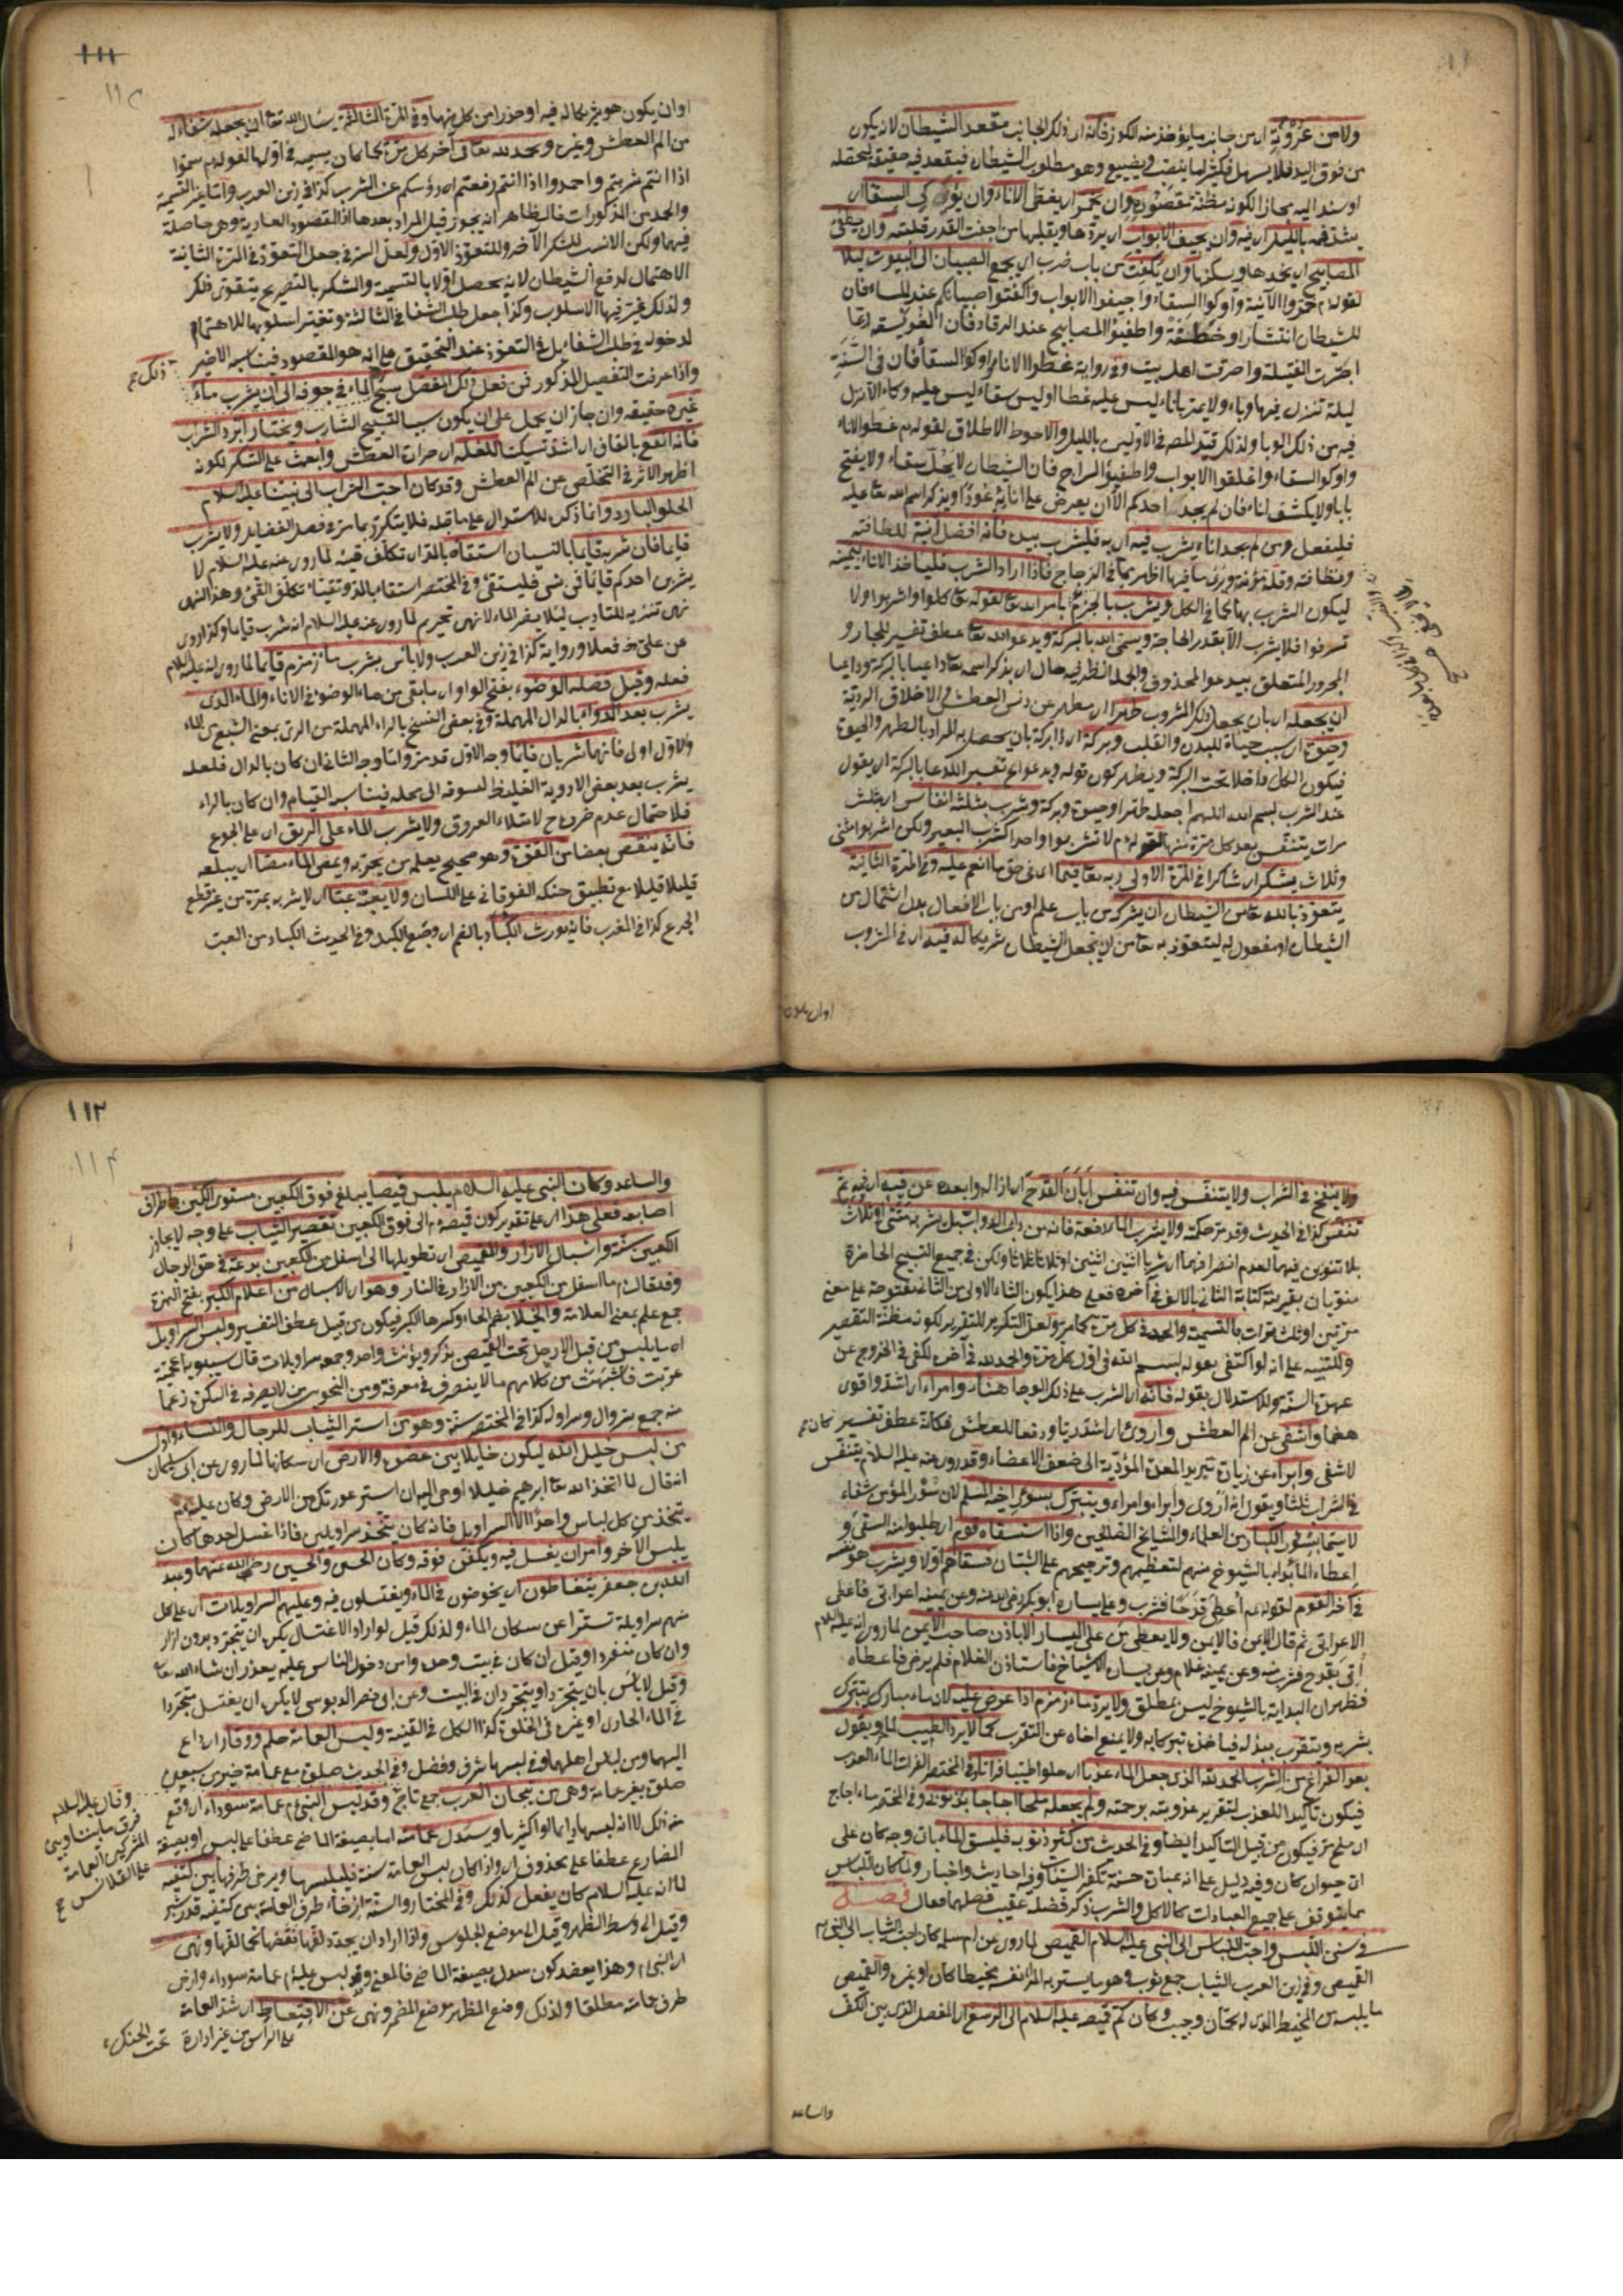 ولا من عروته اى من جانب ما يؤخذ منه الكوز فانه اى ذلك الجانب مقعد الشيطان لانه يكون
من فوق اليد فلا يسهل فكثيرا ما ينصب ويضيع وهو مطلوب الشيطان فيقعد فيه حقيقة ليحصله
او سند اليه مجازا لكونه مظنة مقصوده وان يخمر اى يغطى الاناء وان يوكى السقا اى
يشد فمه بالليل اى فيه وان يجيف الابواب اى يردها ويقلبها من اجفت القدر قلبته وان يطفى
المصابيح اى يخمدها ويسكنها وان يكفت من باب ضرب اى يجمع الصبيان الى البيوت ليلا
لقوله م خمروا الآنية واوكوا السقاء واجيفوا الابواب واكفتوا صبيانكم عند المساء فان
للشيطان انتشارا وخطفة واطفيؤا المصابيح عند الرقاد فان الفويسقة ربما
اجترت الفتيلة واحرقت اهل بيت وفى رواية غطوا الاناء واوكوا السقا فان فى السنة
ليلة تنزل فيها وباء ولا يمر باناء ليس عليه غطا او ليس سقاء ليس عليه وكاء الا نزل
فيه من ذلك الوبا ولذلك قيد المصـ فى الاولين بالليل والاحوط الاطلاق لقوله م غطو الاناء
واوكو السقاء واغلقوا الابواب واطفيؤ السراج فان الشيطان لا يحل سقاء ولا يفتح
بابا ولا يكشف اناء فان لم يجد احدكم الا ان يعرض على انائه عودا ويذكر اسم الله تعا عليه
فليفعل ومن لم يجد اناء يشرب فيه اى به فليشرب بيده فانه افضل آنية للطافته
ونظافته وقلة مؤنته ورؤية ما فيها اظهر مما فى الزجاج فاذا اراد الشرب فلياخذ الاناء بيمينه
ليكون الشرب بها كما فى الاكل ويشرب بالجزم بامر الله تعا لقوله تعا كلوا واشربوا ولا
تسرفوا فلا يشرب الا بقدر الحاجة ويسمى الله بالبركة ويدعو الله تعا عطف تفسير للجار و
المجرور المتعلق بيدعو المحذوف والجملة نظر فيه حال اى يذكر اسمه تعا داعيا بالبركة وداعيا
ان يجعله اى بان يجعل ذلك المشروب طهرا اى مطهر عن دنس العطش والاخلاق الردية
وحيوة اى سبب حياة للبدن والقلب وبركة اى ذا بركة بان يحصل به المراد بالطهر والحيوة
فيكون الكل داخلا تحت البركة ويظهر كون قوله ويدعو الخ تفسير الدعا بالبركة اى يقول
عند الشرب بسم الله اللهم اجعله طهرا وحيوة وبركة ويشرب بثلثة انفاس اى بثلث
مرات يتنفس بعد كل مرة منها لقوله م لا تشربوا واحدا كشرب البعير ولكن اشربوا مثنى
وثلاث يشكر اى شاكرا فى المرة الاولى ربه تعا فيما اى فى حق ما انعم عليه وفى المرة الثانية
يتعوذ بالله تعا من الشيطان ان يشركه من باب علم او من باب الافعال بدل اشتمال من
الشيطان او مفعول له ليتعوذ به تعا من ان يجعل الشيطان شريكا له فيه اى فى المشروب
اوان يكون
١١١
او ان يكون هو شريكا له فيه او حذرا من كل منهما وفى المرة الثالثة يسأل الله تعا ان يجعله شفاء له
من الم العطش وغيره ويحمد لله تعالى آخر كل مرة كما كان يسميه فى اولها لقوله م سموا
اذا انتم شربتم واحمدوا اذا انتم رفعتم اى رؤسكم عن الشرب كذا فى زين العرب واما تاخير التسمية
والحمد من المذكورات فالظاهر انه يجوز قبل المراد بعدها اذ المقصود العادية وهى حاصلة
فيها ولكن الانسب للشكر الآخر وللتعوذ الاول ولعل السر فى جعل التعوذ فى المرة الثانية
الاهتمال لدفع الشيطان لانه يحصل اولا بالتسمية والشكر بالتصريح يتقوى فكر
ولذلك غير فيها الاسلوب وكذا جعل طلب الشفا فى الثالثة وتغير اسلوبها للاهتمام
لدخوله فى طلب الشفاء بل فى التعوذ عند التحقيق على انه هو المقصود فيناسبه الاخير
واذا عرفت التفصيل المذكور فمن فعل ذلك الفصل سبح الماء فى جوفه الى ان يشرب ماء
ذلك صح
غيره حقيقة وان جاز ان يحمل على ان يكون سببا لتسبيح الشارب ويختار ابرد الشراب
فانه انقع بالقاف اى اشد تسكينا للغلة اى حرات العطش وابعث على الشكر لكونه
اظهر الاثر فى التخلص عن الم العطش وقد كان احب الشراب الى نبينا عليه السلام
الحلو البارد وانما ذكره للاستدلال على ما قبله فلا يتكرر بما مر فى فصل الفضايل ولا يشرب
قايما فان شربه قايما بالنسيان استقاه بالمد اى تكلف قيئه لما روى عنه عليه السلام لا
يشربن احدكم قايما فمن نسى فليستقئ وفى المختصر استقاء بالمد وتقيئا تكلف القئ وهذا النهى
نهى تنزيه للتاديب ليلا يضر الماء لا نهى تحريم لما روى عنه عليه السلام انه شرب قايما وكذا روى
عن على رض فعلا ورواية كذا فى زين العرب ولا باس بشرب ماء زمزم قايما لما روى انه عليه السلام
فعله وقيل فضلة الوضوء بفتح الواو اى ما بقى من ماء الوضوء فى الاناء والماء الذى
يشرب بعد الدواء بالدال المهملة وفى بعض النسخ بالراء المهملة من الرى بمعنى الشبع من الماء
والاول اولى فانهما شربان قايما وجه الاول قد مر واما وجه الثانى ان كان بالدال فلعله
يشرب بعد بعض الادوية الغليظ لسوقه الى محله فيناسبه القيام وان كان بالراء
فلاحتمال عدم ضرره ح لامتلاء العروق ولا يشرب الماء على الريق اى على الجوع
فانه ينقص بعضا من القوة وهو صحيح يعلمه من يجربه ويمص الماء مصا اى يبلعه
قليلا قليلا مع تطبيق حنكه الفوقانى على اللسان ولا يعبه عبا اى لا يشربه بمرة من غير قطع
الجرع كذا فى المغرب فانه يورث الكباد بالضم اى وجع الكبد وفى الحديث الكباد من العب
ولا ينفخ فى الشراب ولا يتنفس فيه وان تنفس ابان القدح اى ازاله وابعده عن فيه اى فمه ثم
تنفس كذا فى الحديث وقد مر حكمته ولا يشرب الماء دفعة فانه من داب الدواب بل يشربه مثنى او ثلاث
بلا تنوين فيهما لعدم انصرافهما اى شربا اثنين اثنين او ثلاثا ثلاثا ولكن فى جميع النسخ الحاضرة
منونان بقرينة كتابة الثانى بالالف فى آخره فعلى هذا يكون الثاء الاولى من الثانى مفتوحة على معنى
مرتين او ثلث مرات بالتسمية والحمد فى كل مرة كما مر ولعل التكرير للتقرير لكونه مظنة التقصير
وللتنبيه على انه لو اكتفى بقوله بسم الله فى اول كل مرة والحمد لله فى آخره لكفى فى الخروج عن
عهدة السنة وللاستدلال بقوله فانه اى الشرب على ذلك الوجه اهنأ وامراء اى اشد واقوى
هضما واشفى عن الم العطش واروى اى اشد ريا ودفعا للعطش فكانه عطف تفسير
كان صح
لاشفى وابراء عن زيادة تبريد المعدة المؤدية الى ضعف الاعضاء وقد روى عنه عليه السلام يتنفس
فى الشراب ثلثا ويقول انه اروى وابراء وامراء ويتبرك بسؤر اخيه المسلم لان سؤر المؤمن شفاء
لا سيما سؤر الكبار من العلماء والمشايخ الصالحين واذا استسقاه قوم اى طلبوا منه السقى و
اعطاء الماء بداء بالشيوخ منهم لتعظيمهم وترجيحهم على الشبان فسقاهم اولا ويشرب هو نفسه
فى آخر القوم لقوله م اعطى قدحا فشرب وعلى يساره ابو بكر رضى الله عنه وعن يمينه اعرابى فاعطى
الاعرابى ثم قال الايمن فالايمن ولا يعطى من على اليسار الا باذن صاحب الايمن لما روى انه عليه السلام
اتى بقدح فشرب منه وعن يمينه غلام وعن يساره الاشياخ فاستاذن الغلام فلم يرض فاعطاه
فظهر ان البداية بالشيوخ ليس بمطلق ولا يرد ماء زمزم اذا عرض عليه لان ماء مبارك يتبرك
بشربه ويتقرب ببذله فياخذه تبركا به ولا يمنع اخاه عن التقرب كما لا يرد الطيب لما مر ويقول
بعد الفراغ من الشرب الحمد لله الذى جعل الماء عذبا اى حلوا طيبا فراتا وفى المختصر الفرات الماء العذب
فيكون تاكيد اللعذب لتقرير عذوبته برحمته ولم يجعله ملحا اجاجا بذنوبى وفى المختصر ماء اجاج
اى ملح مر فيكون من قبيل التاكيد ايضا وفى الحديث من كثر ذنوبه فليسق الماء بات وجه كان على
اى حيوان كان وفيه دليل على انه عبادة حسنة تكفر السيئات وفيه احاديث واخبار ولما كان اللباس
مما يتوقف على جميع العبادات كالاكل والشرب ذكر فضله عقيب فصلهما فقال فصل
فى سنن اللبس واحب اللباس الى النبى عليه السلام القميص لما روى عن ام سلمة كان احب الثياب الى النبى م
القميص وفى زين العرب الثياب جمع ثوب وهو ما يستر به المرء نفسه مخيطا كان او غيره والقميص
ما يلبسه من المخيط الذى له كمان وجيب وكان كم قميصه عليه السلام الى الرسغ اى المفصل الذى بين الكف
والساعد
١١٢
والساعد وكان النبى عليه السلام يلبس قميصا يبلغ فوق الكعبين مستوى الكمين باطراف
اصابعه فعلى هذا اى على تقدير كون قميصه م الى فوق الكعبين تقصير الثياب على وجه لا يجاوز
الكعبين سنة واسبال الازار والقميص اى تطويلهما الى اسفل من الكعبين بدعة فى حق الرجال
وقد قال م ما اسفل من الكعبين من الازار فى النار وهو اى الاسبال من اعلام الكبر بفتح الهمزة
جمع علم بمعنى العلامة والخيلا بضم الخاء وكسرها الكبر فيكون من قبيل عطف التفسير ولبس السراويل
اى ما يلبس من قبل الارجل تحت القميص يذكر ويؤنث واحد وجمعه سراويلات قال سيبويه اعجمية
عربت فاشبهت من كلامهم ما لا ينصرف فى معرفة ومن النحويين من لا يصرفه فى النكرة زعما
منه جمع سروال وسراولة كذا فى المختصر سنة وهو من استر الثياب للرجال والنساء واول
من لبس خليل الله ليكون حايلا بين عضوه والارض اى سكانها لما روى عن ابى سليمان
انه قال لما اتخذ الله تعا ابرهيم خليلا اوحى اليه ان استر عورتك من الارض وكان عليه م
يتخذ من كل لباس واحدا الا السراويل فانه كان يتخذ سراويلين فاذا غسل احدهما كان
يلبس الآخر وامر ان يغسل فيه ويكفن فوقه وكان الحسن والحسين رضى الله عنهما وعبد
الله بن جعفر يتغاطون اى يخوضون فى الماء ويغتسلون فيه وعليهم السراويلات اى على كل
منهم سراويلة تسترا عن سكان الماء ولذلك قيل لو اراد الاغتسال يكره ان يتجرد بدون ازار
وان كان منفردا وقيل ان كان فى بيت وحده وامن دخول الناس عليه يعذر ان شاء الله تعا
وقيل لا باس بان يتجرد او يتجردان فى البيت وعن ابى نصر الدبوسى لا يكره ان يغتسل متجردا
فى الماء الجارى او غيره فى الخلوة كذا الكل فى القنية ولبس العمامة حلم ووقار اى داع
اليهما ومن لباس اهلهما وفى لبسها شرف وفضل وفى الحديث صلوة مع عمامة خير من سبعين
صلوة بغير عمامة وهى من تيجان العرب جمع تاج وقد لبس النبى م عمامة سوداء اى وقع
وقال عليه السلام
فرق ما بيننا وبين
المشركين العمامة
على القلانس صح
منه ذلك لا انه لبسها دايما او اكثريا ويسدل عمامته اما بصيغة الماضى عطفا على لبس او بصيغة
المضارع عطفا على محذوف اى واذا كان لبس العمامة سنة فليلبسها ويرخى طرفها بين كتفيه
لما انه عليه السلام كان يفعل كذلك وفى المختار والسنة ارخاء طرف العمامة بين كتفيه قدر شبر
وقيل الى وسط الظهر وقيل الى موضع الجلوس واذا اراد ان يجدد لفها نقضها كما لفها ونهى
اى النبى م وهذا يعضد كون سدل بصيغة الماضى فالمعنى وقد لبس عليه م عمامة سوداء وارخى
طرف عمامته مطلقا ولذلك وضع المظهر موضع المضمر ونهى عن الاقتعاط اى شد العمامة
على الرأس من غير ادارة تحت الحنك